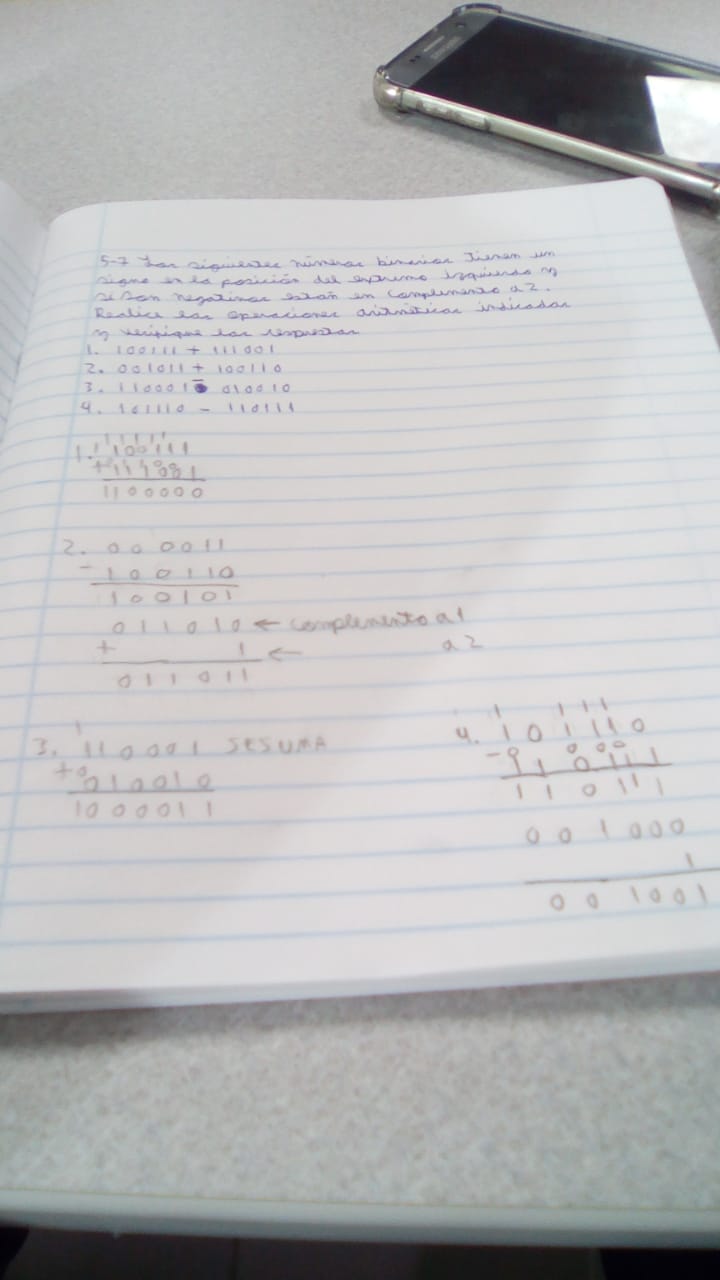 5-7 Los siguientes números binarios tienen un
signo en la posición del extremo izquierdo y
si son negativos están en complemento a 2.
Realice las operaciones aritméticas indicadas
y verifique las respuestas
1. 100111 + 111001
2. 001011 + 100110
3. 110001 - 010010
4. 101110 - 110111
1 1 1 1 1 1
1. 100111
+ 111001
1100000
2. 000011
- 100110
100101
011010 ← complemento a 1
+ 1 ← a 2
011011
1
3. 110001 SE SUMA
+ 010010
1000011
1 1 1 1
4. 101110
- 110111
110111
001000
1
001001
SAMSUNG